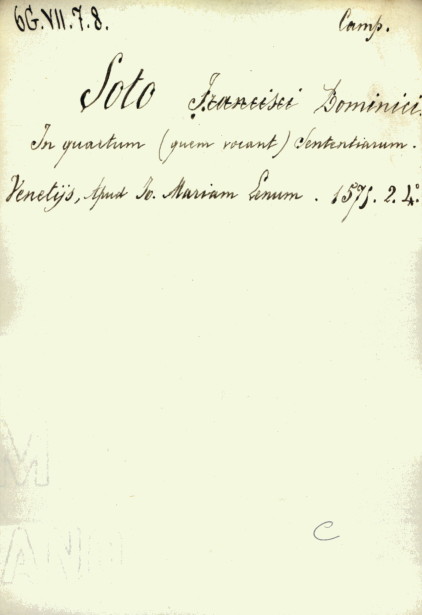 6G.VII.7.8. Camp.
Soto Francisci Dominici.
In quartum (quem vocant) Sententiarum.
Venetijs, Apud Jo. Mariam Lenum. 1575. 2. 4°
C